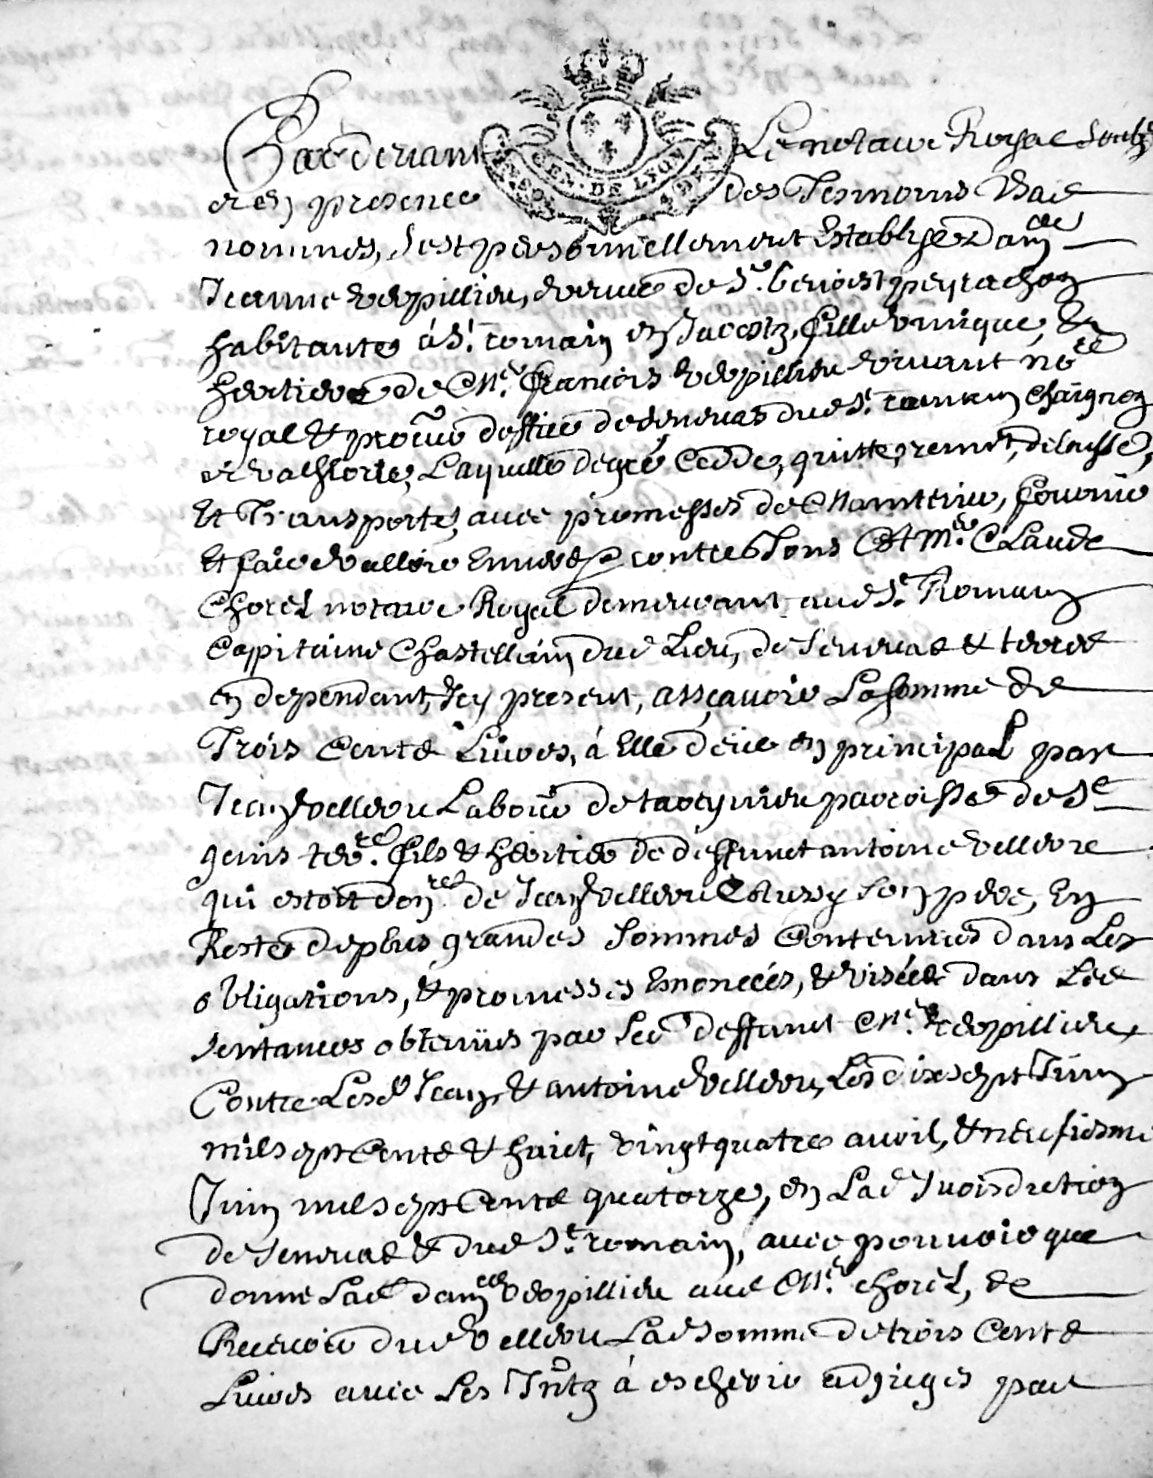 Pardevant Le notaire Royal soubz.e
GEN. DE LYON
et en presence des Tesmoins Bas
nommes, s'est personnellement Establye Dam.lle
Jeanne verpillieu, vefve de S.r benoist peyrachon
habitante á S.t romain en Jarestz, fille unique, Et
heritiere de M.re françois verpillieu vivant no.re
royal et procu.r d'office de senevas dud S.t romain
et valflorie, Laquelle de gré Cedde, quitte, remet, delaisse,
Et Transporte, avec promesses de Maintenir, fournir
Et faire valloir Envers et contre Tous A M.re CLaude
Chorel notaire Royal demeurant aud S.t Romain
Capitaine Chastellain dud Lieu, de Senevas et terres
en dependant, Icy present, assçavoir La somme de
Trois Cents Livres, á Elle deüe en principaL par
Jean velleru Labou.r de paroisse de S.t
genis ter.re fils et heritier de deffunct antoine
qui estoit don.re de Jean son pere, En
Reste de plus grandes sommes Contenues dans Les
obligations, et promesses Enoncées, et visées dans Les
sentances obtenües par led deffunct M.re verpillieu,
Contre Lesd Jean et antoine Les dixsept Juin
mil sept Cents et huict, vingtquatre avril, et neufiesme
Juin mil sept Cents quatorze, en Lad Jurisdiction
de senevas et dud S.t romain, avec pouvoir que
donne Lad dam.lle verpillieu aud M.re choreL, de
Recevoir dud Lad somme de trois Cents
Livres avec Les Intz á escheoir adjugés par